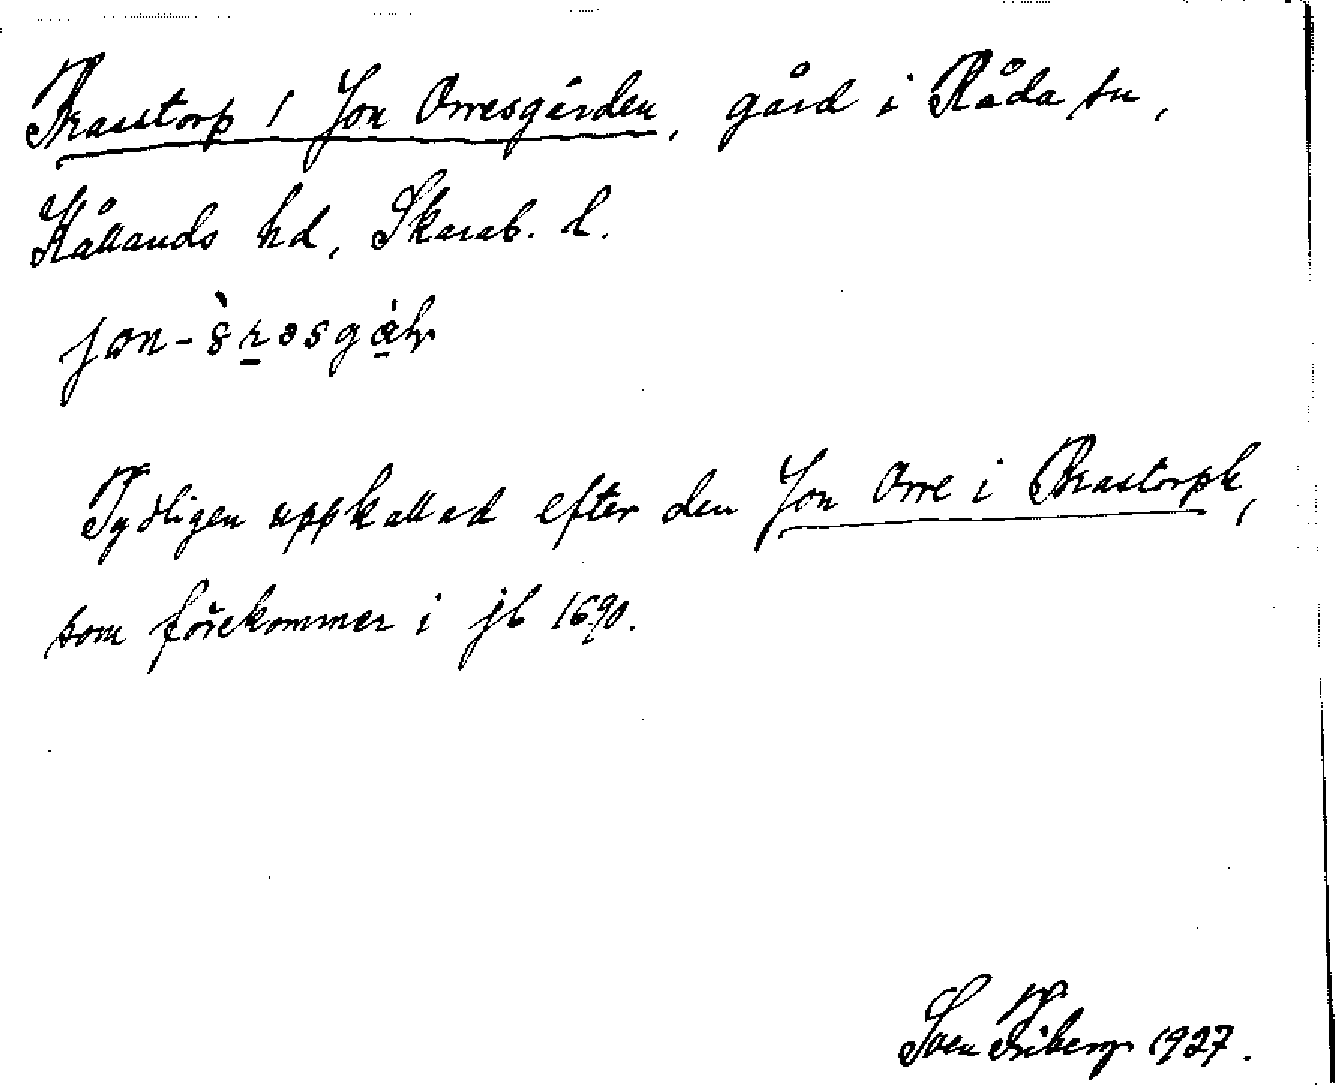 Frasstorp 1 Jon Orresgården, gård i Råda sn,
Kållands hd, Skarab. l.
Tydligen uppkallad efter den Jon Orre i Brastorph,
som förekommer i jb 1690.
Sven Friberg 1927.